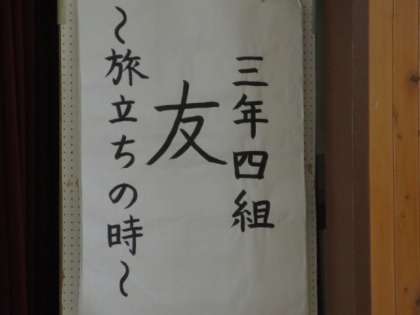 三年四組
友
～旅立ちの時～